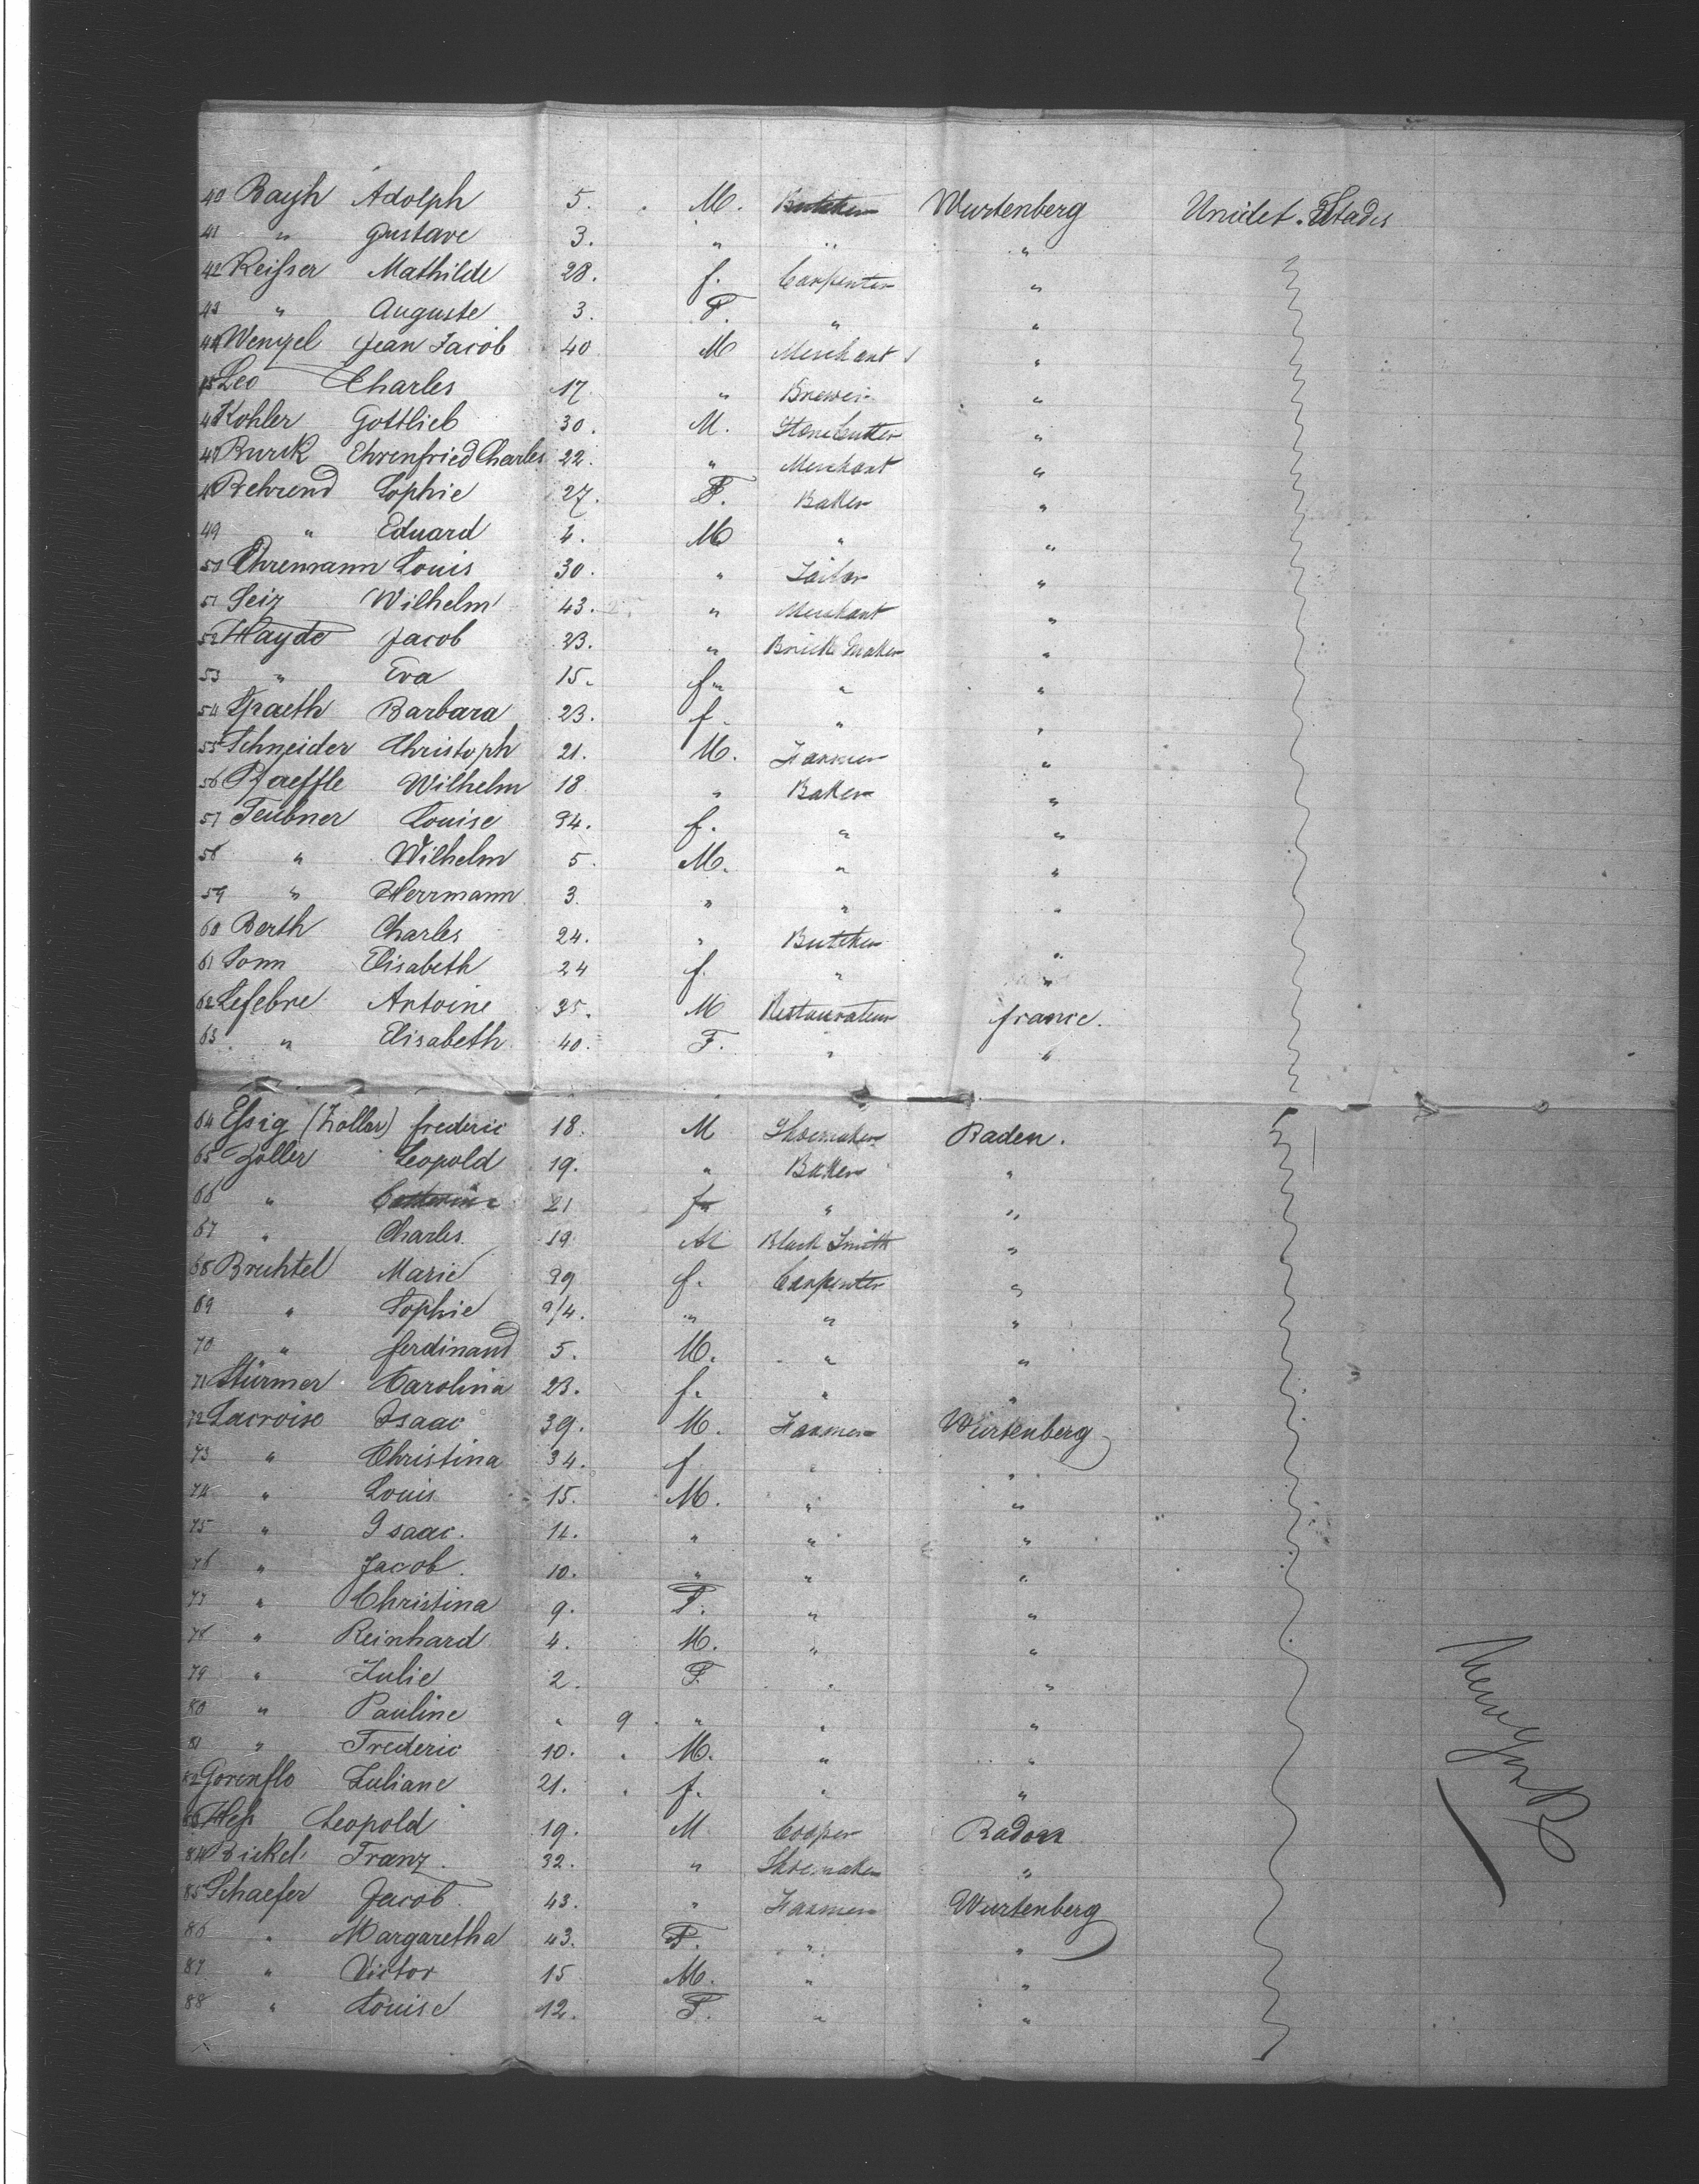 40 Bayh Adolph 5. M. Butcher Wurtenberg Unidet. Stades
41 " Gustave 3. " " "
42 Reisser Mathilde 28. f. Carpenter "
43 " Auguste 3. F. " "
44 Wenzel Jean Jacob 40 M Merchant "
45 Leo Charles 17. " Brewer "
46 Kohler Gottlieb 30. M. Stone Cutter "
47 Burck Ehrenfried Charles 22. " Merchant "
48 Behrend Sophie 27. F. Baker "
49 " Eduard 4. M " "
50 Ehremann Louis 30. " Tailor "
51 Seiz Wilhelm 43. " Merchant "
52 Hayde Jacob 23. " Brick Maker "
53 " Eva 15. f " "
54 Spaeth Barbara 23. f. " "
55 Schneider Christoph 21. M. Farmer "
56 Pfaeffle Wilhelm 18 " Baker "
57 Teubner Louise 34. f. " "
58 " Wilhelm 5. M. " "
59 " Herrmann 3. " " "
60 Berth Charles 24. " Butcher "
61 Sonn Elisabeth 24 f. " "
62 Lefebre Antoine 35. M Restaurateur france.
63 " Elisabeth 40. F. " "
64 Essig (Zoller) frederic 18. M Shoemaker Baden.
65 Zoller Leopold 19. " Baker "
66 " Catterine 21 f " "
67 " Charles 19 M Black Smith "
68 Bruchtel Marie 29 f. Carpenter "
69 " Sophie 9/4. " " "
70 " ferdinand 5. M. " "
71 Stürmer Carolina 23. f. " "
72 Lacroise Isaac 39. M. Farmer Wurtenberg
73 " Christina 34. f " "
74 " Louis 15. M. " "
75 " Isaac. 11. " " "
76 " Jacob. 10. " " "
77 " Christina 9. F. " "
78 " Reinhard 4. M. " "
79 " Julie 2. F. " "
80 " Pauline " 9 " " "
81 " Frederic 10. M. " "
82 Gorenflo Juliane 21. f. " "
83 Hess Leopold 19. M Cooper Baden
84 Bickel Franz. 32. " Shoemaker "
85 Schaefer Jacob. 43. " Farmer Wurtenberg
86 " Margaretha 43. F. " "
87 " Victor 15 M. " "
88 " Louise 12. F. " "
New York